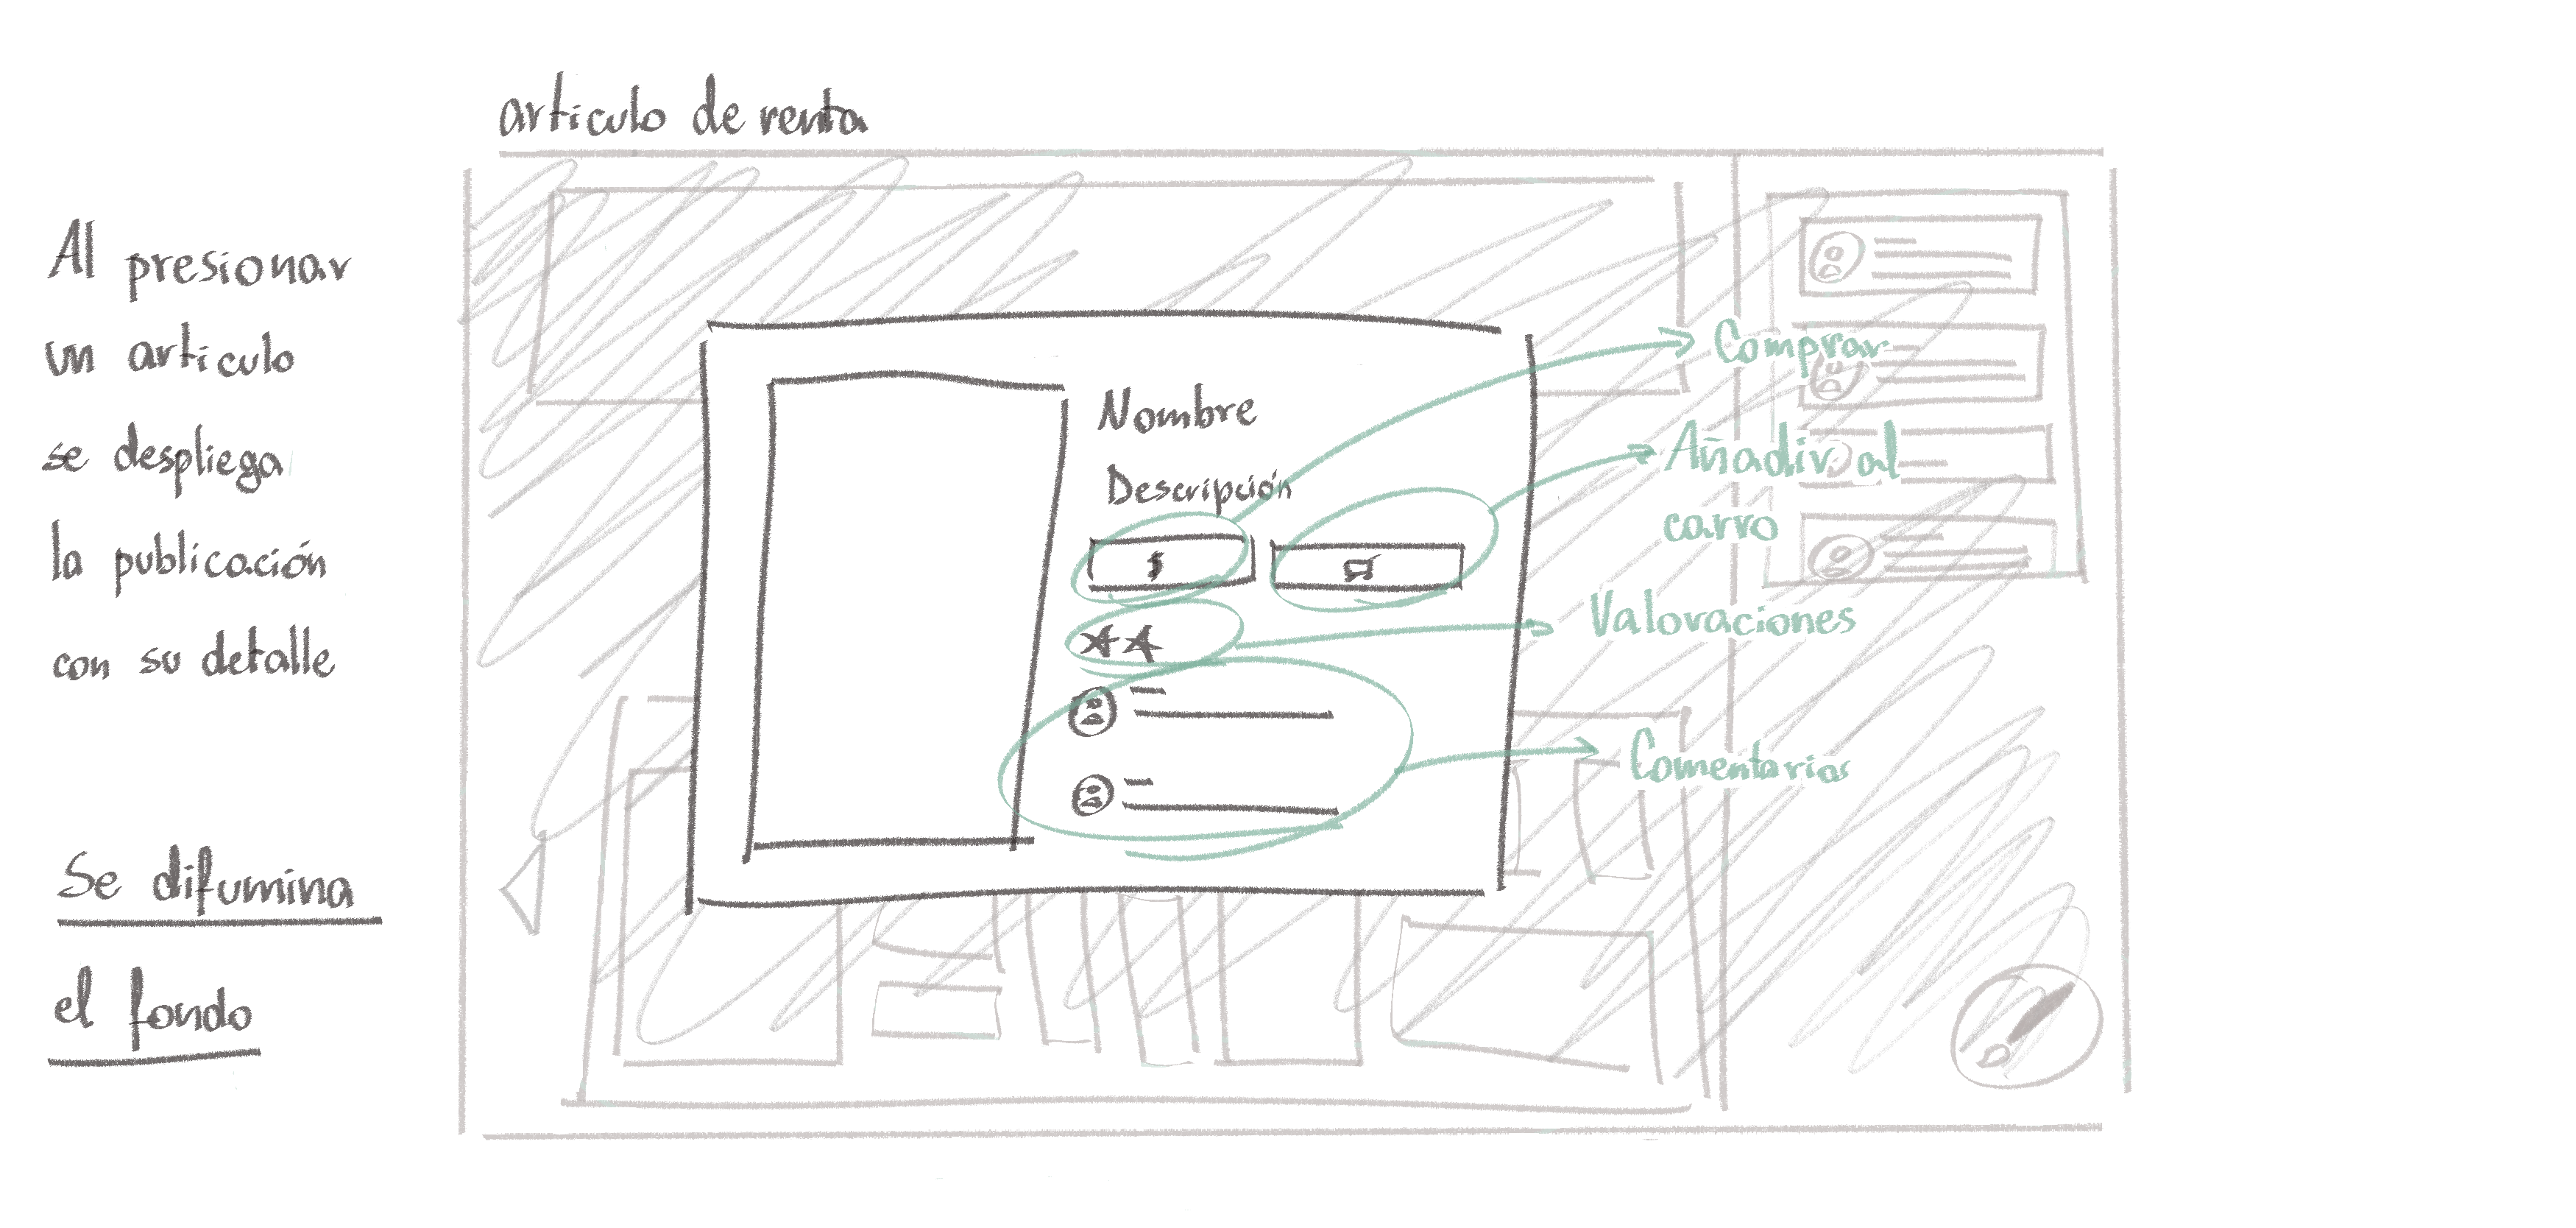 articulo de renta
Al presionar
un articulo
se despliega
la publicación
con su detalle
Se difumina
el fondo
Nombre
Descripción
$
Comprar
Añadir al
carro
Valoraciones
Comentarios